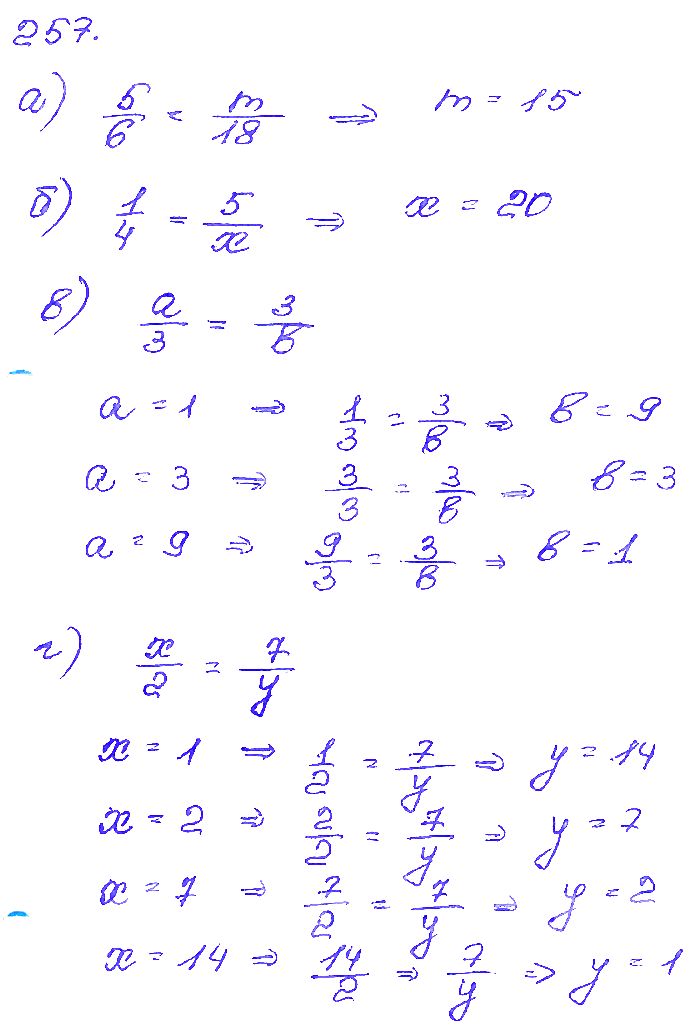 257.
а) 5/6 = m/18 ⇒ m = 15
б) 1/4 = 5/x ⇒ x = 20
в) a/3 = 3/в
a = 1 ⇒ 1/3 = 3/в ⇒ в = 9
a = 3 ⇒ 3/3 = 3/в ⇒ в = 3
a = 9 ⇒ 9/3 = 3/в ⇒ в = 1
г) x/2 = 7/y
x = 1 ⇒ 1/2 = 7/y ⇒ y = 14
x = 2 ⇒ 2/2 = 7/y ⇒ y = 7
x = 7 ⇒ 7/2 = 7/y ⇒ y = 2
x = 14 ⇒ 14/2 ⇒ 7/y => y = 1